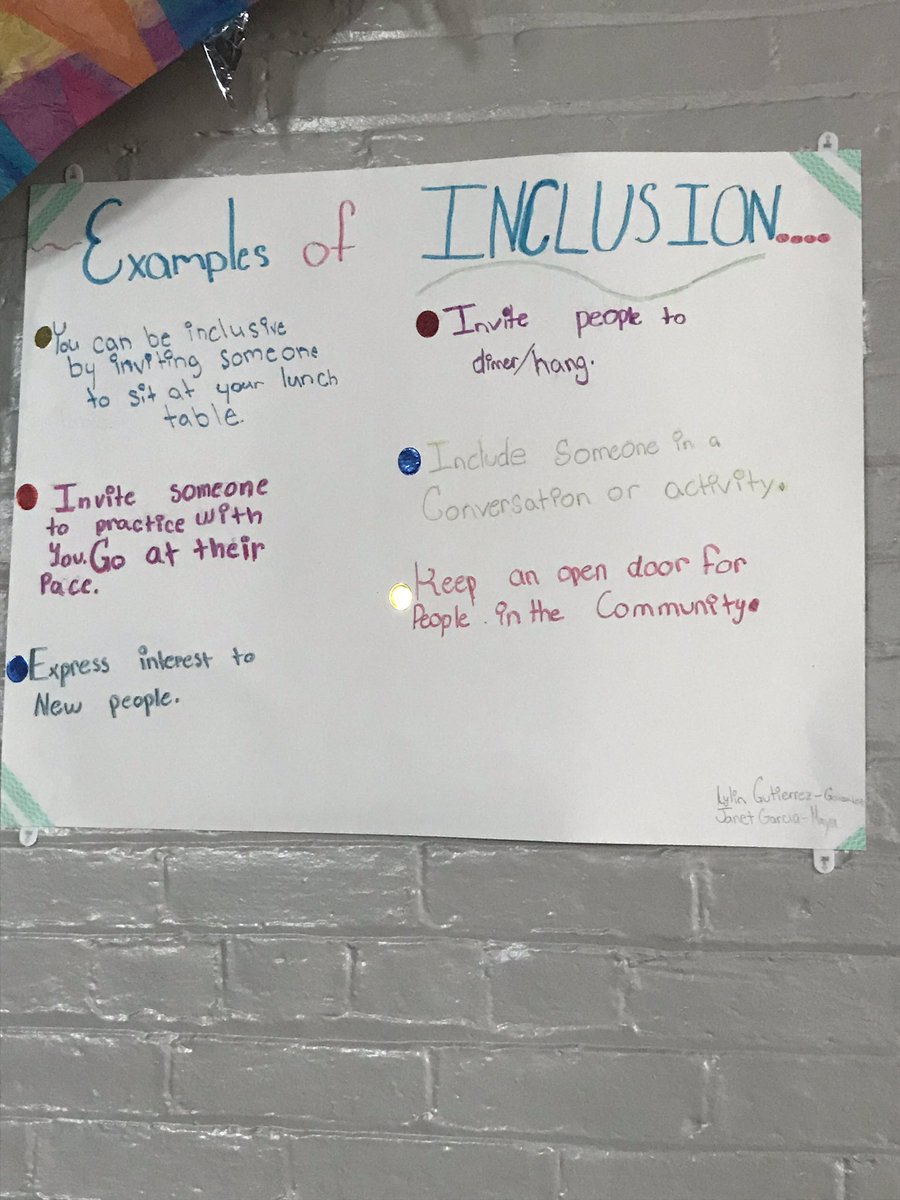 Examples of INCLUSION....
You can be inclusive
by inviting someone
to sit at your lunch
table.
Invite someone
to practice with
You. Go at their
Pace.
Express interest to
New people.
Invite people to
diner/hang.
Include Someone in a
Conversation or activity.
Keep an open door for
People. in the Community.
Aylin Gutierrez-
Janet Garcia-